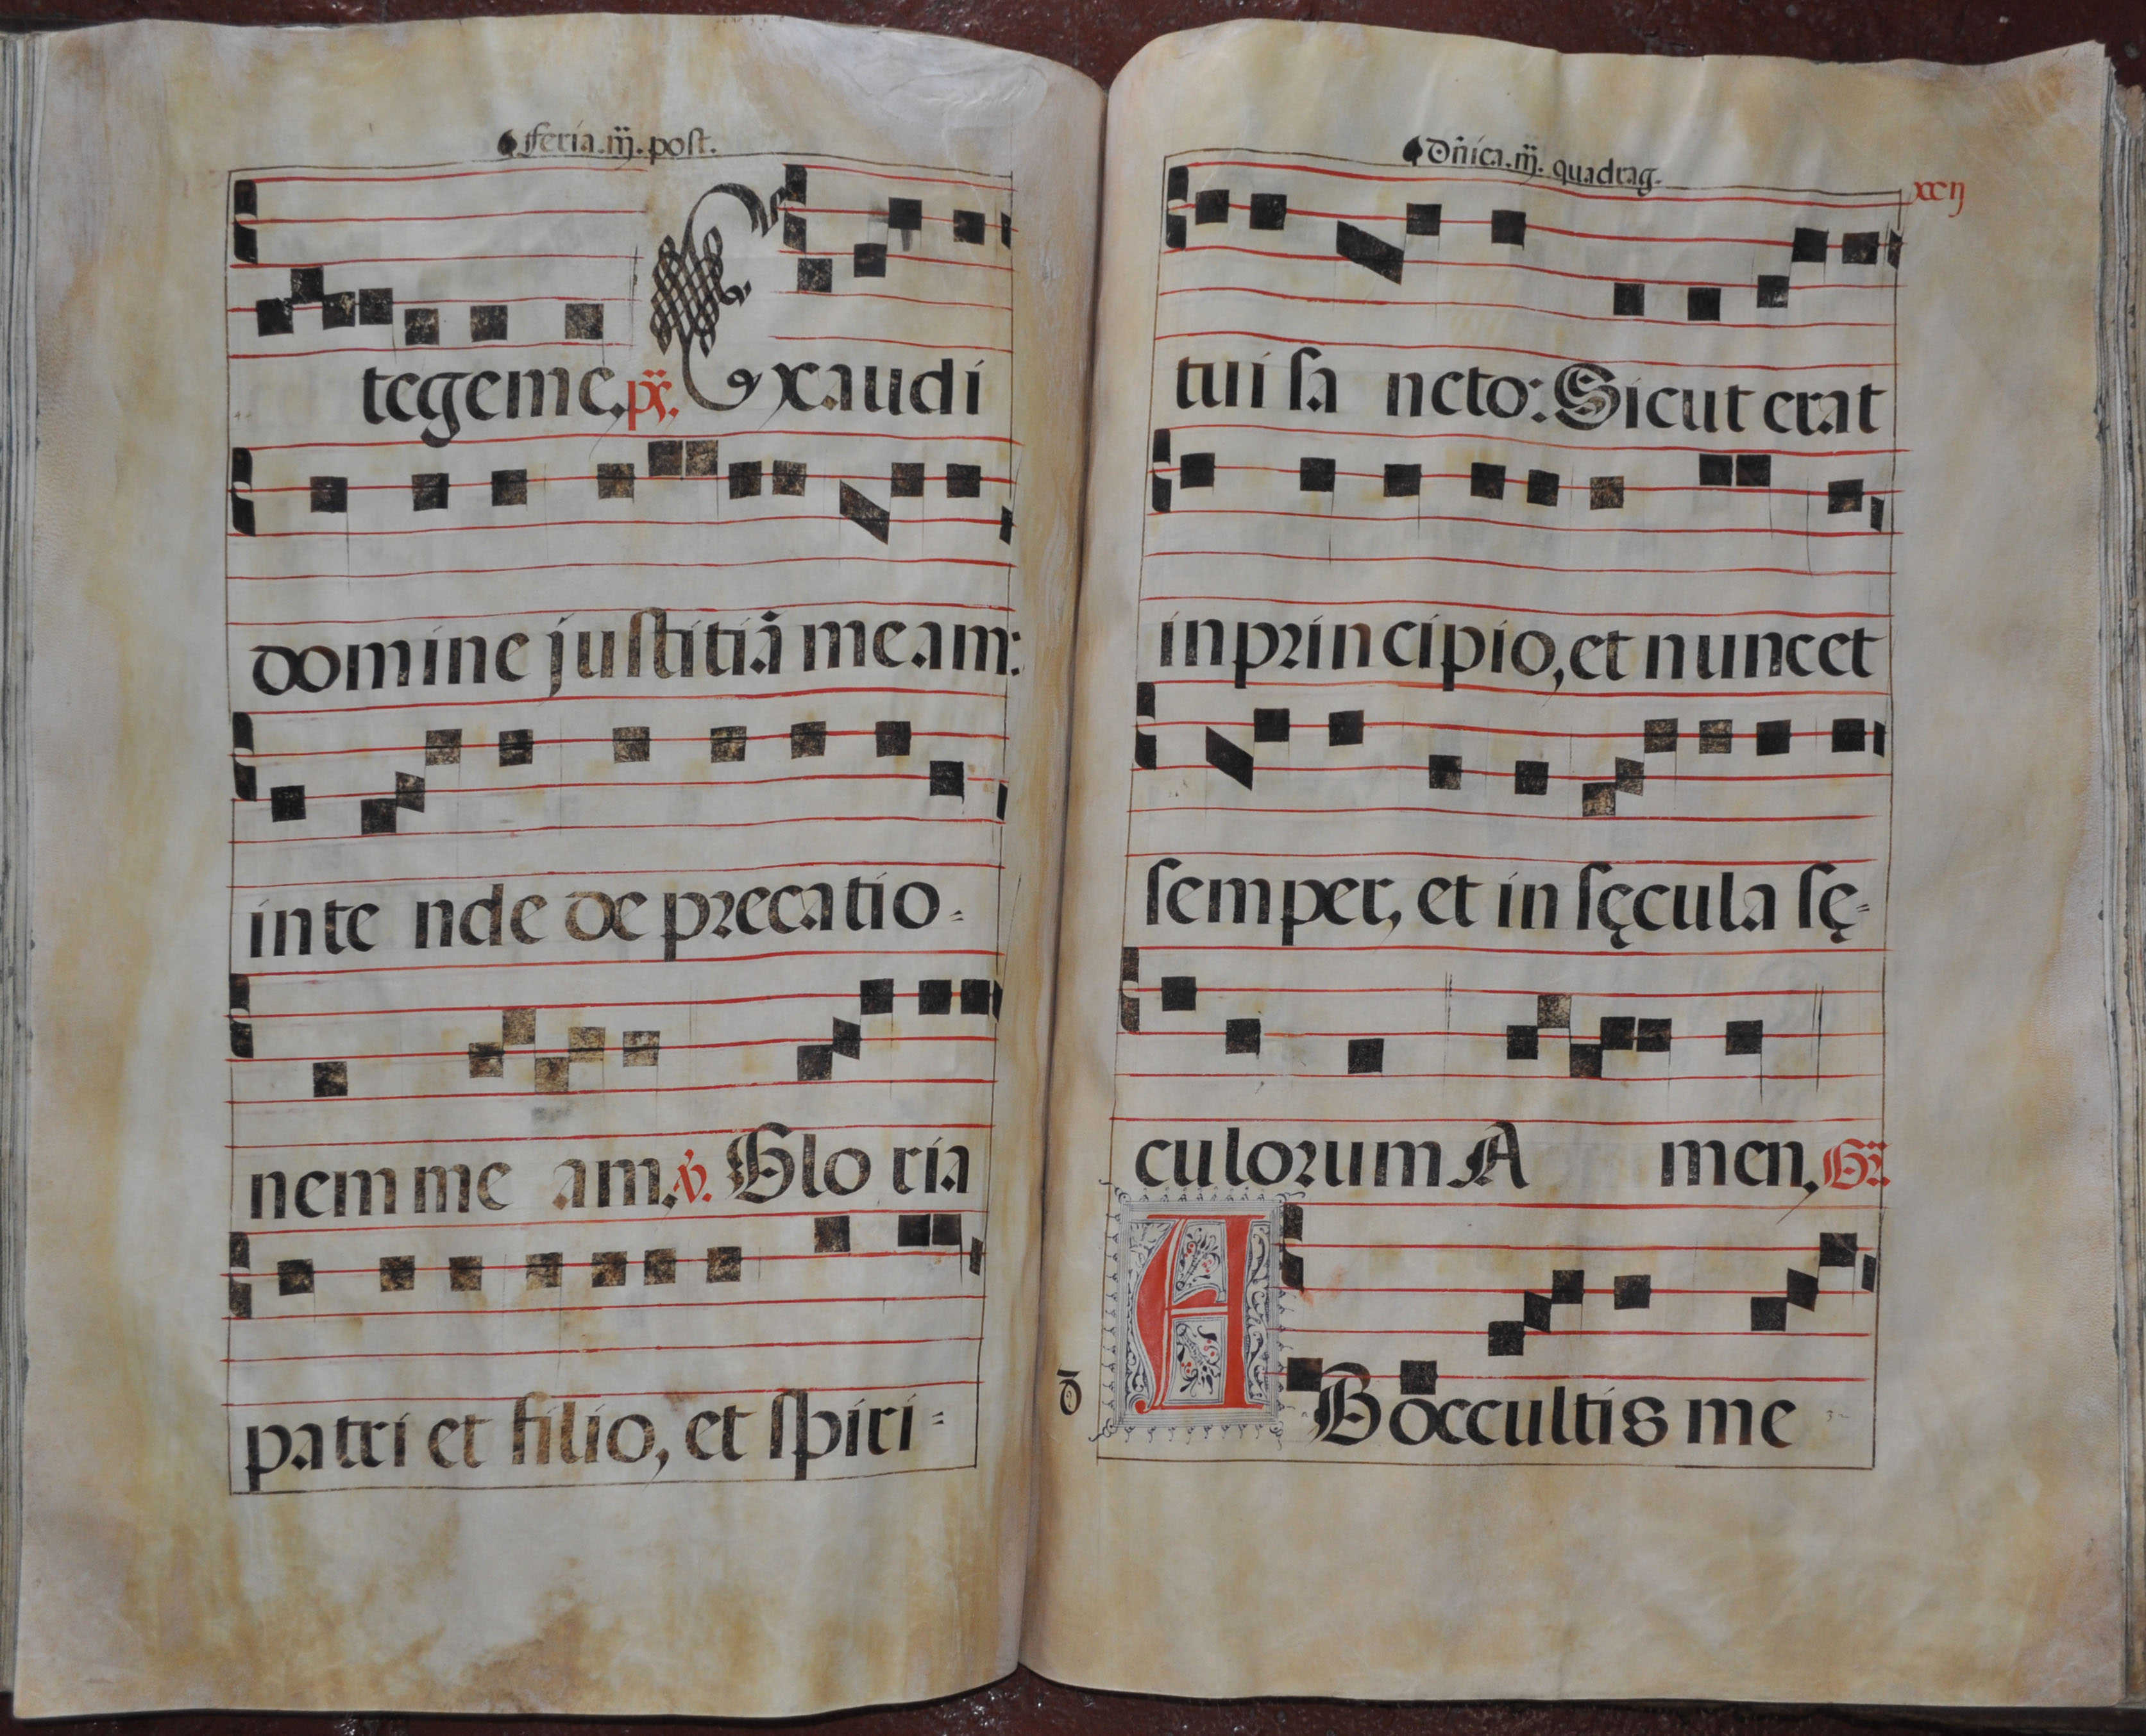 feria.iij.post.
tegeme.ps. Exaudi
domine justitiā meam:
inte nde de precatio-
nem me am. v. Glo ria
patri et filio, et spiri=
Dñica.iij. quadrag.
xcij
tui sa ncto: Sicut erat
in principio, et nunc et
semper, et in sęcula sę-
culorum A men, Gr.
AB occultis me